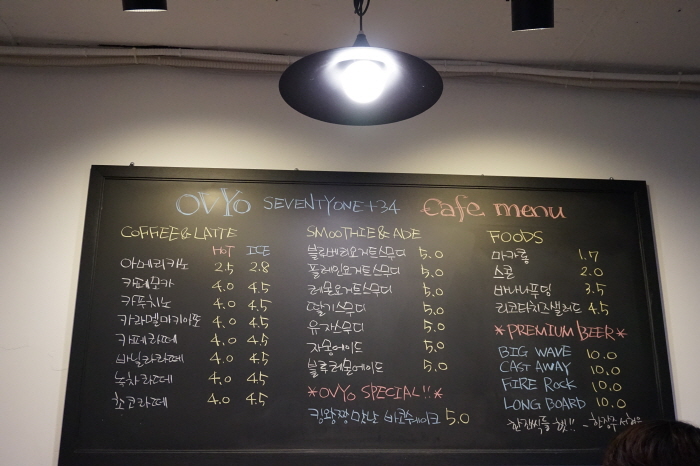 OVYo SEVENTYONE+34 Cafe menu
COFFEE & LATTE
HOT ICE
아메리카노 2.5 2.8
카페모카 4.0 4.5
카푸치노 4.0 4.5
카라멜마키아또 4.0 4.5
카페라떼 4.0 4.5
바닐라라떼 4.0 4.5
녹차라떼 4.0 4.5
초코라떼 4.0 4.5
SMOOTHIE & ADE
블루베리요거트스무디 5.0
플레인요거트스무디 5.0
레몬요거트스무디 5.0
딸기스무디 5.0
유자스무디 5.0
자몽에이드 5.0
블루레몬에이드 5.0
*OVYo SPECIAL!!*
킹왕짱맛난 바코쉐이크 5.0
FOODS
마카롱 1.7
스콘 2.0
바나나푸딩 3.5
리코타치즈샐러드 4.5
*PREMIUM BEER*
BIG WAVE 10.0
CAST AWAY 10.0
FIRE ROCK 10.0
LONG BOARD 10.0